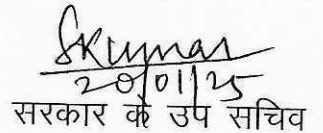 SKumar
20/01/25
सरकार के उप सचिव